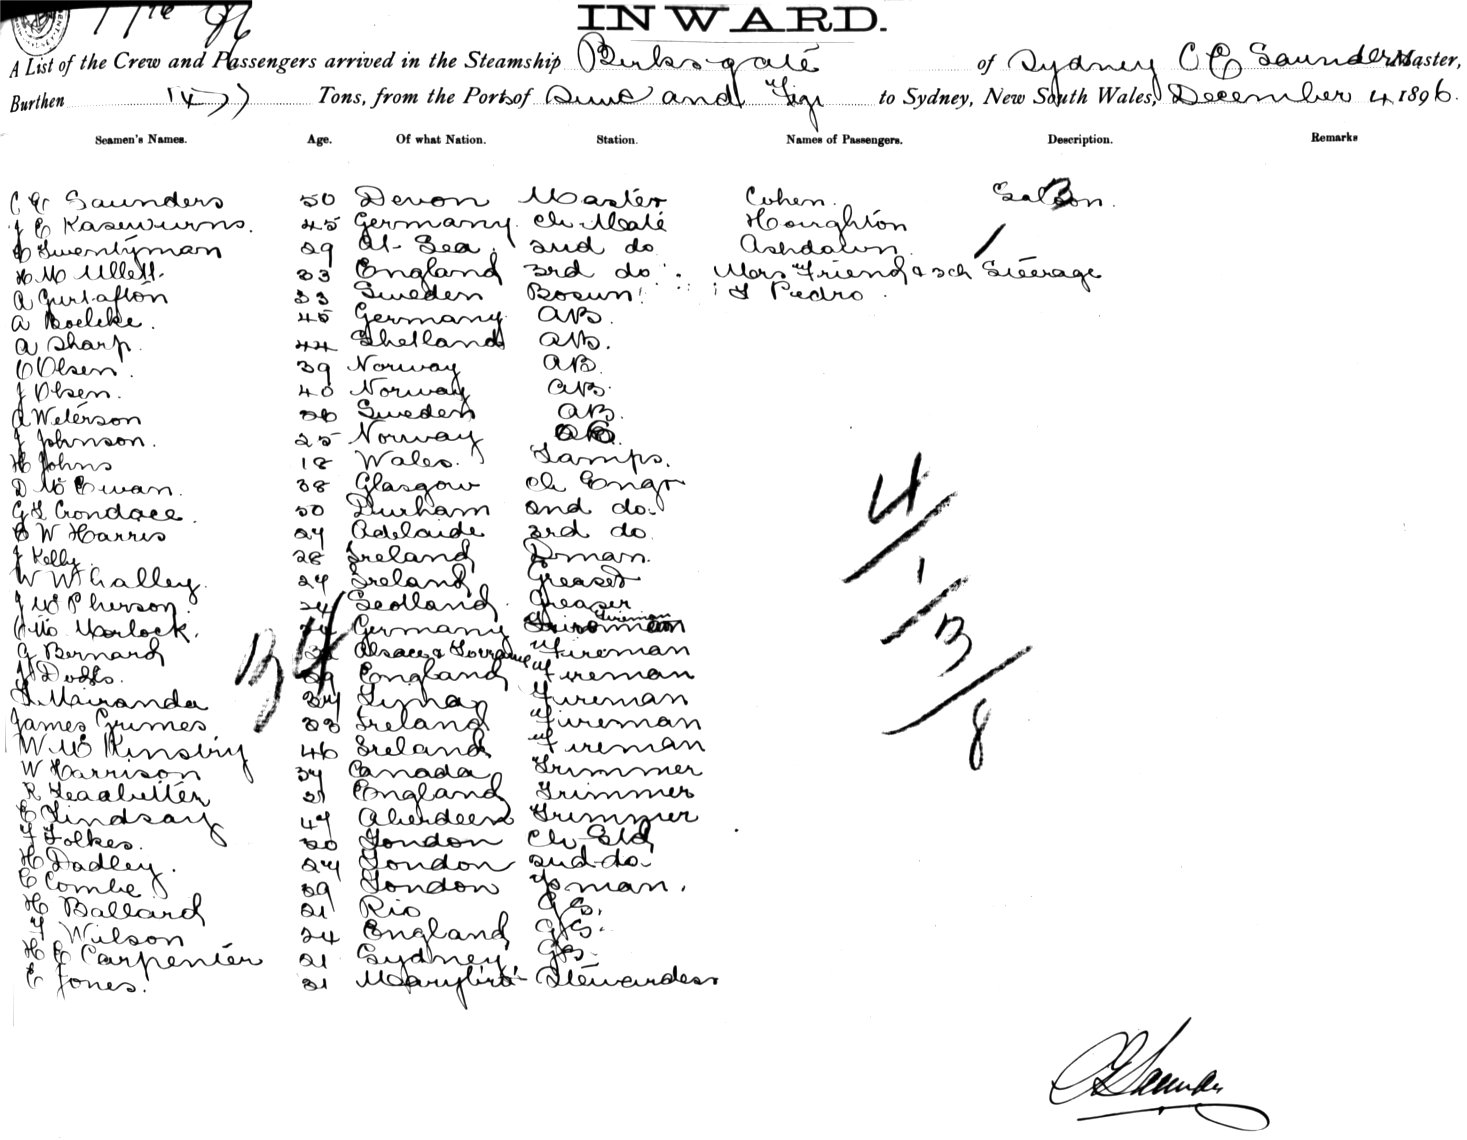 INWARD.
A List of the Crew and Passengers arrived in the Steamship Birksgate of Sydney C E Saunders Master,
Burthen 1477 Tons, from the Ports of and Fiji to Sydney, New South Wales, December 4 1896.
Seamen's Names. Age. Of what Nation. Station. Names of Passengers. Description. Remarks
C E Saunders 50 Devon Master Cohen. Saloon.
J E Kasewurns. 45 Germany. Ch Mate Houghton
Twentyman 29 At Sea. 2nd do Ashdown
H M Ullett. 33 England 3rd do. Mrs Friend & 3ch Steerage
A Gustafton 33 Sweden Bosun. F Pedro.
A Boelcke. 45 Germany. AB.
A Sharp. 44 Shetland AB.
C Olsen. 39 Norway AB.
J Olsen. 40 Norway AB.
A Weterson 36 Sweden AB.
J Johnson. 25 Norway AB.
H Johns 18 Wales. Lamps.
D McEwan. 38 Glasgow Ch Engr
G L Crondace. 50 Durham 2nd do.
W Harris 27 Adelaide 3rd do
J Kelly. 28 Ireland Dman.
W McGalley. 27 Ireland Greaser
J McPherson. 24 Scotland Greaser
Morlock. Germany Fireman
G Bernard 32 Alsace & Lorraine Fireman
J Dodds. 29 England Fireman
L. Miranda 37 Lima Fireman
James Grimes 33 Ireland Fireman
W McKinstry 46 Ireland Fireman
W Harrison 37 Canada Trimmer
R Leadbetter 31 England Trimmer
E Lindsay 47 Aberdeen Trimmer
F Folkes. 30 London Ch Std
H Dadley. 27 London 2nd do
E Combe 39 London Pman.
H Ballard 21 Rio GS.
F Wilson 24 England GS.
H E Carpenter 21 Sydney GS.
E Jones. 31 Stewardess
34
4
1
3
8
C E Saunders